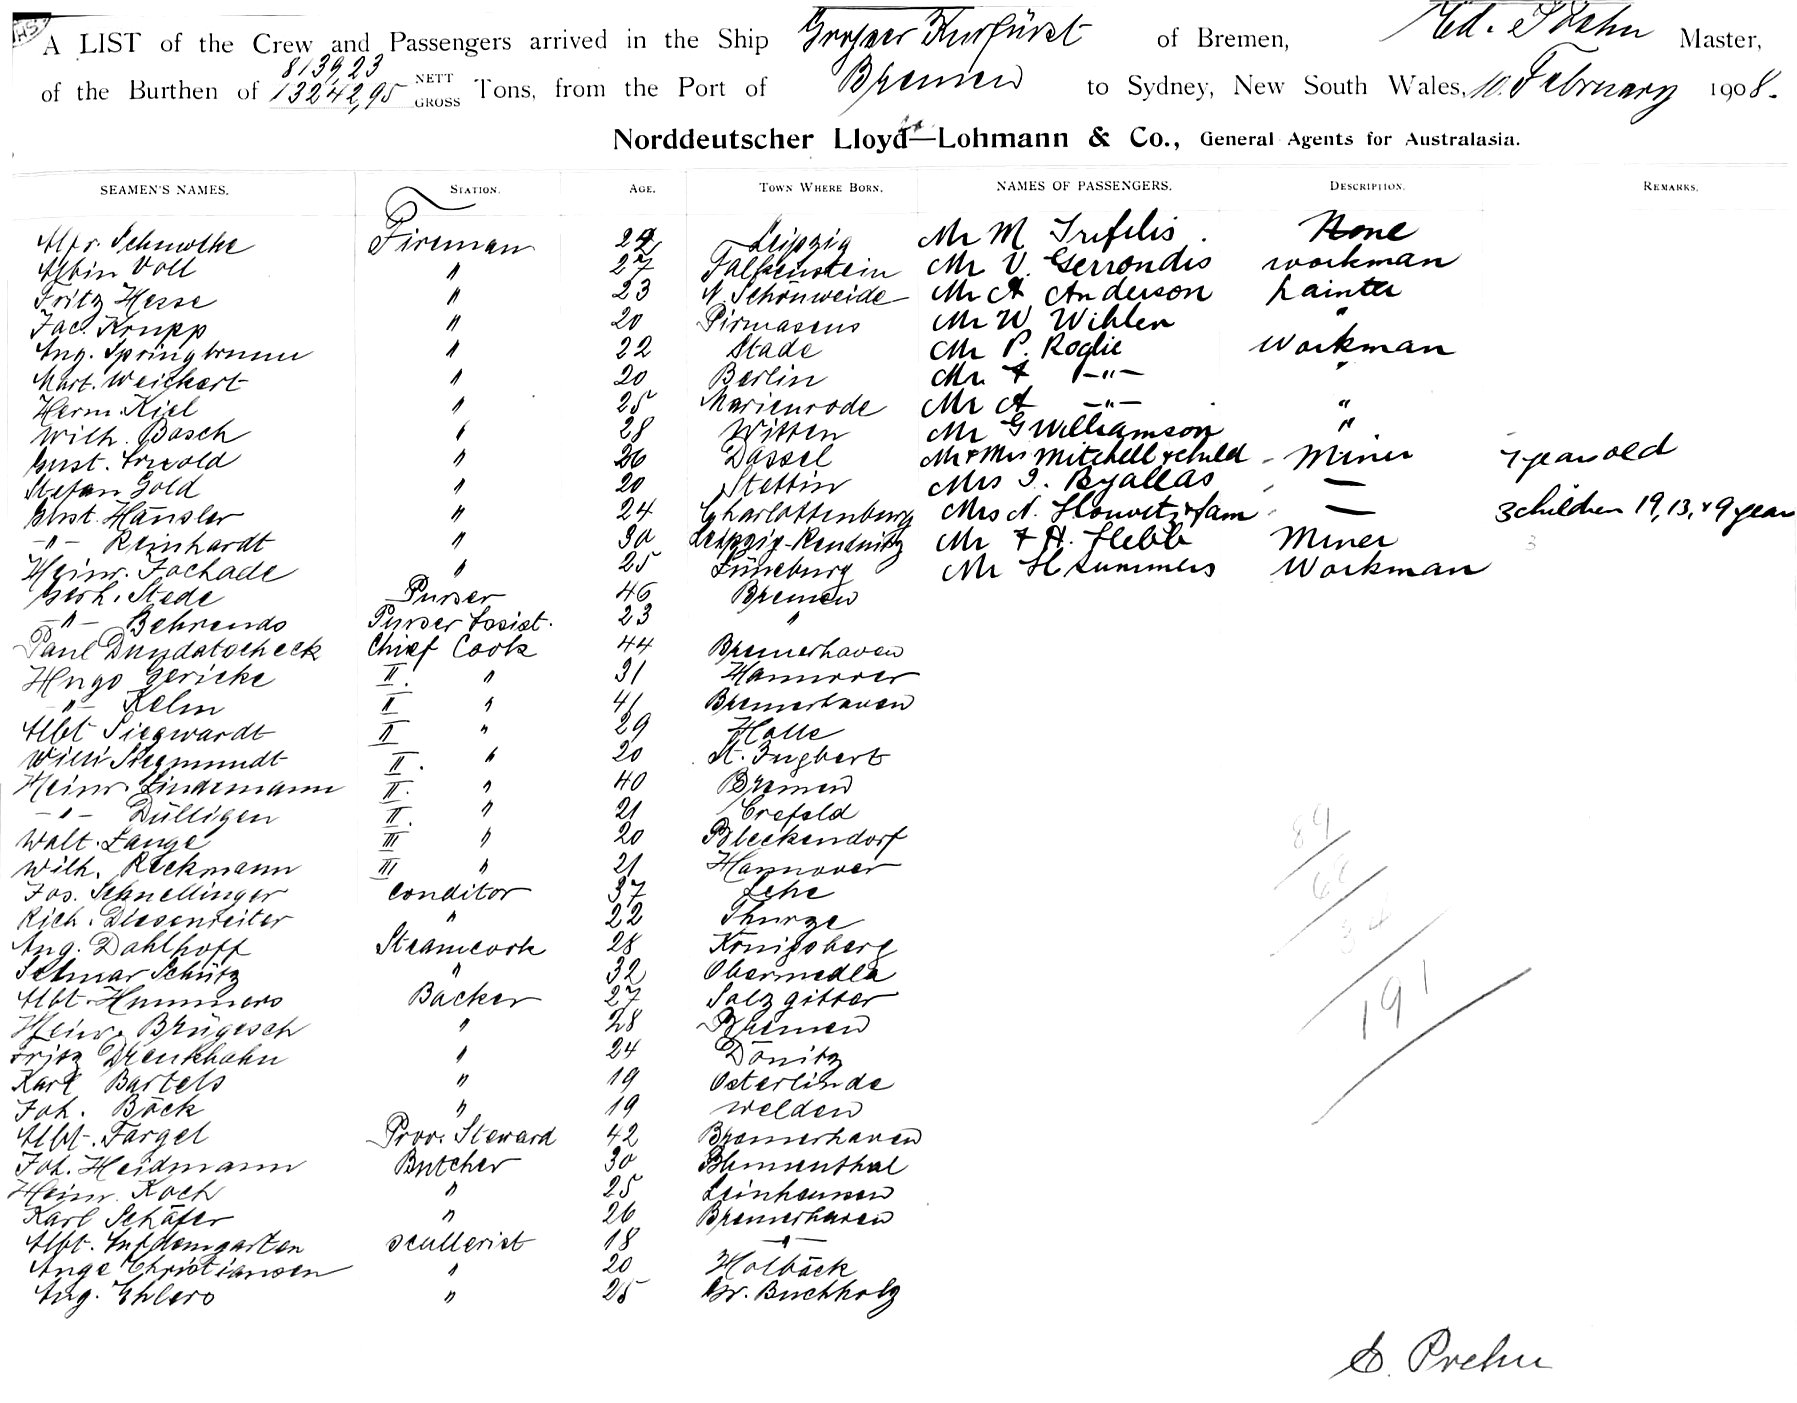 A LIST of the Crew and Passengers arrived in the Ship Grosser Kurfürst of Bremen, Ed. Prehn Master,
of the Burthen of 8139,23 13242,95 NETT GROSS Tons, from the Port of Bremen to Sydney, New South Wales, 10. February 1908.
Norddeutscher Lloyd—Lohmann & Co., General Agents for Australasia.
SEAMEN'S NAMES. STATION. AGE. TOWN WHERE BORN. NAMES OF PASSENGERS. DESCRIPTION. REMARKS.
Alfr. Fireman Leipzig Mr M Trifilis. None
Albin Voll " 27 Falkenstein Mr V. Gerrondis workman
Fritz Hesse " 23 N. Schönweide Mr A Anderson painter
Jac. Krupp " 20 Pirmasens Mr W Wihlen "
Aug. Springbrunn " 22 Stade Mr P. Roglie Workman
Mart. Weickert " 20 Berlin Mr. F -"- "
Herm. Kiel " 25 Marienrode Mr A -"- "
Wilh. Bosch " 28 Witten Mr G Williamson "
Gust. " 26 Dassel Mr & Mrs Mitchell & child Miner 7 years old
Stefan Gold " 20 Stettin Mrs I. Byallas —
Gust. Hänsler " 24 Charlottenburg Mrs N. & fam — 3 children 19, 13, & 9 year
-"- Reinhardt " 30 Leipzig-Reudnitz Mr F H. Hebb Miner
Heinr. Jochade " 25 Lüneburg Mr H Summers Workman
Gerh. Stede Purser 46 Bremen
-"- Behrends Purser Assist. 23 "
Paul Chief Cook 44 Bremerhaven
Hugo Gericke II. " 31 Hannover
-"- Kelm II " 41 Bremerhaven
Albt Siegwardt II " 29 Halle
Willi Stegmundt II. " 20 St. Ingbert
Heinr. Lindemann II. " 40 Bremen
-"- Dülligen II. " 21 Crefeld
Walt. Lange III " 20 Bleckendorf
Wilh. Reckmann III " 21 Hannover
Jos. Schnellinger Conditor 37 Lehe
Rich. Diesenreiter " 22 Thurze
Aug. Dahlhoff Steamcook 28 Königsberg
Selmar Schütz " 32
Albt. Hummers Backer 27 Salzgitter
Heinr. Brügesch " 28 Bremen
Fritz Drenkhahn " 24 Dömitz
Karl Bartels " 19 Osterlinde
Joh. Böck " 19 Welden
Albt. Fargel Prov. Steward 42 Bremerhaven
Joh. Heidmann Butcher 30 Blumenthal
Heinr. Koch " 25 Leinhausen
Karl Schäfer " 26 Bremerhaven
Albt. Aufdemgarten scullerist 18 -"-
Aage Christiansen " 20 Holbäck
Aug. Ehlers " 25 Gr. Buchholz
191
E. Prehn